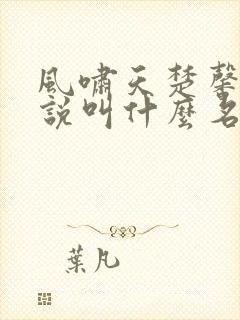 風嘯天楚馨
說叫什麼名
葉凡